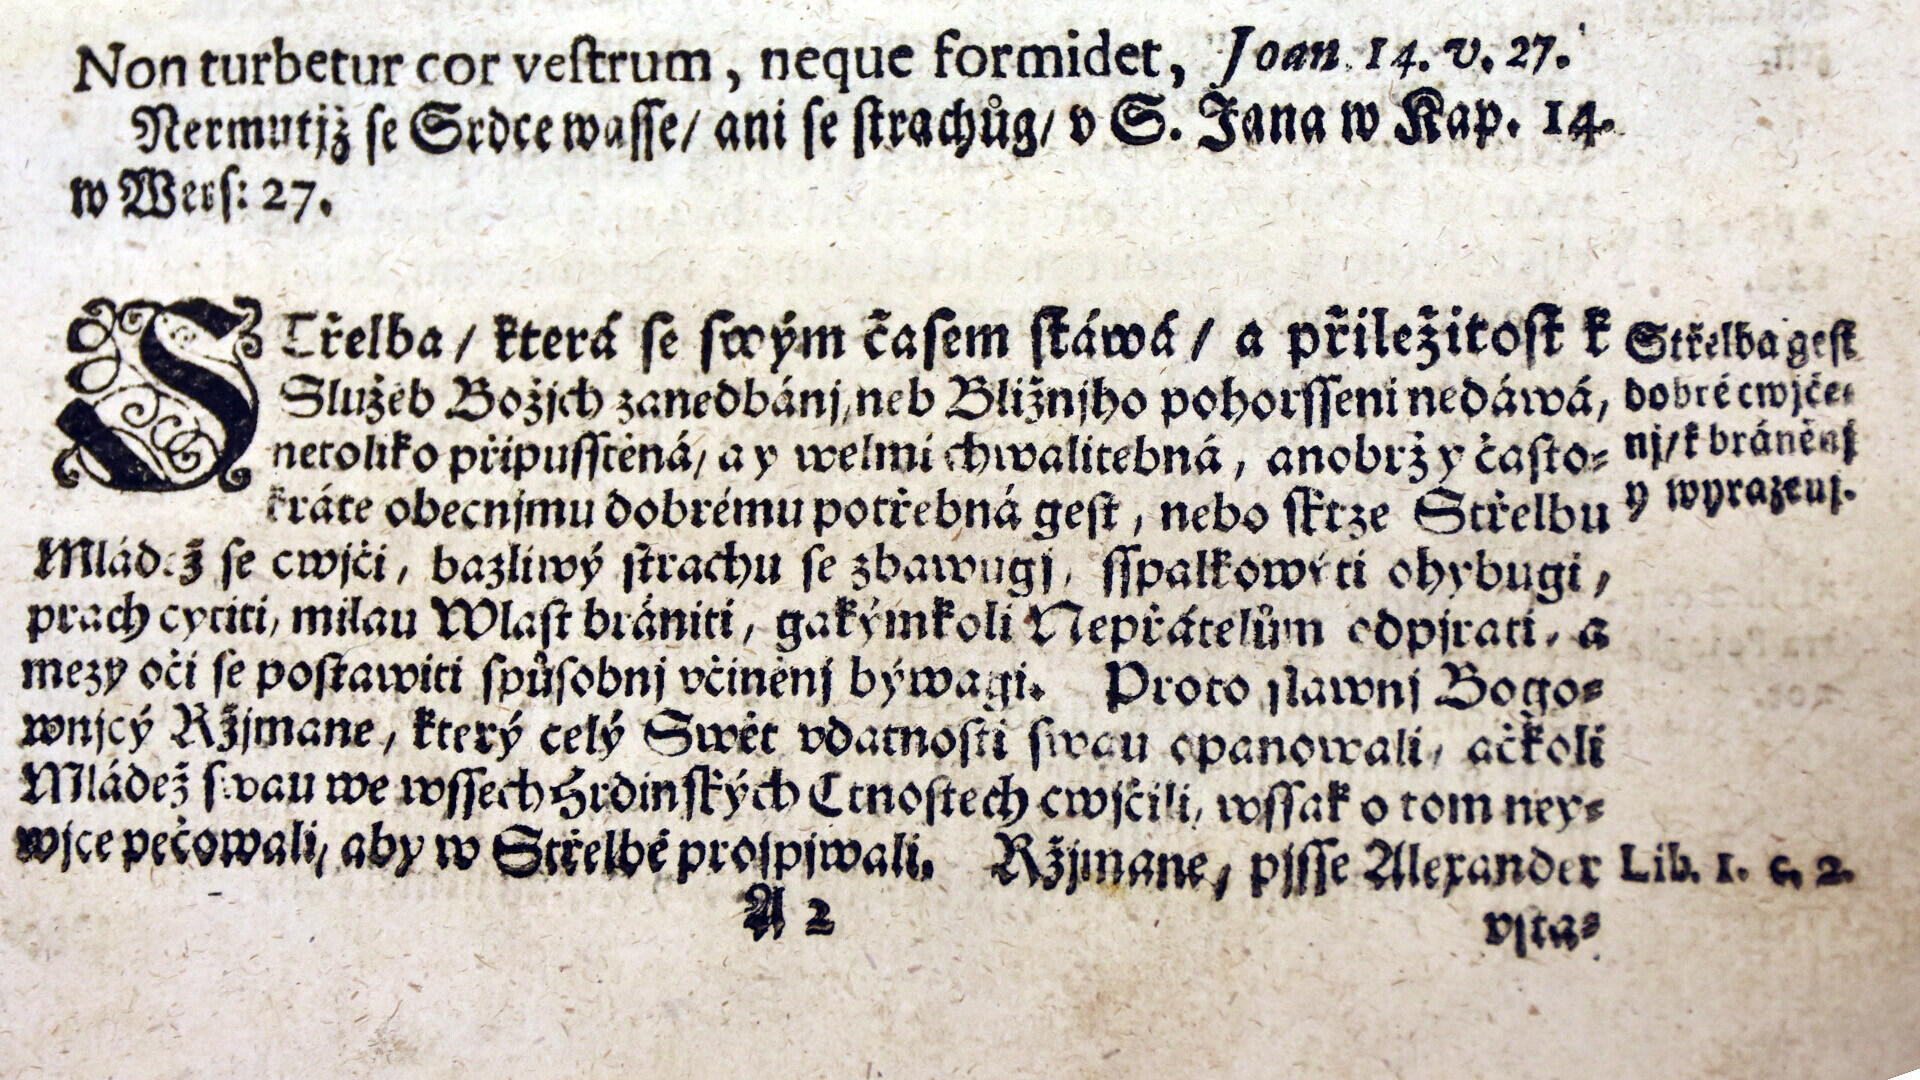 Non turbetur cor vestrum, neque formidet, Joan. 14. v. 27.
Nermutjž se Srdce wasse/ ani se strachůg/ v S. Jana w Kap. 14.
w Wers: 27.
STřelba/ která se swým časem stáwá/ a přiležitost k
Služeb Božjch zanedbánj, neb Bližnjho pohorsseni nedáwá,
netoliko připusstěná/ a y welmi chwalitebná, anobrž y často-
kráte obecnjmu dobrému potřebná gest, nebo skrze Střelbu
Mládež se cwjči, bazliwý strachu se zbawugj, sspalkowiti ohybugi,
prach cytiti, milau Wlast brániti, gakýmkoli Nepřátelům odpjrati, a
mezy oči se postawiti spůsobnj včiněnj býwagi. Proto slawnj Bogo-
wnjcý Ržjmane, který celý Swět vdatnosti swau opanowali, ačkoli
Mládež swau we wssech Hrdinských Ctnostech cwjčili, wssak o tom ney-
wjce pečowali, aby w Střelbě prospjwali. Ržjmane, pjsse Alexander
A 2
vsta-
Střelba gest
dobré cwjče-
nj/ k bráněnj
y wyrazenj.
Lib. 1. c. 2.